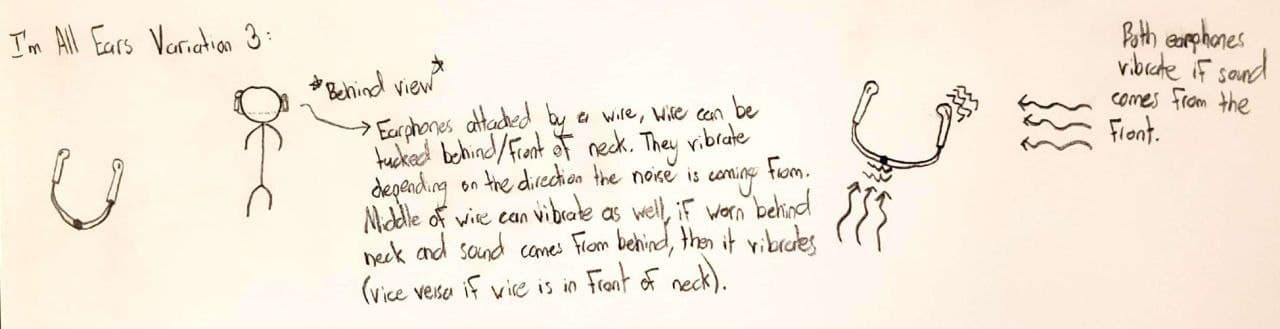 I'm All Ears Variation 3:
*Behind view*
Earphones attached by a wire, wire can be
tucked behind/front of neck. They vibrate
depending on the direction the noise is coming from.
Middle of wire can vibrate as well, if worn behind
neck and sound comes from behind, then it vibrates
(vice versa if wire is in front of neck).
Both earphones
vibrate if sound
comes from the
front.